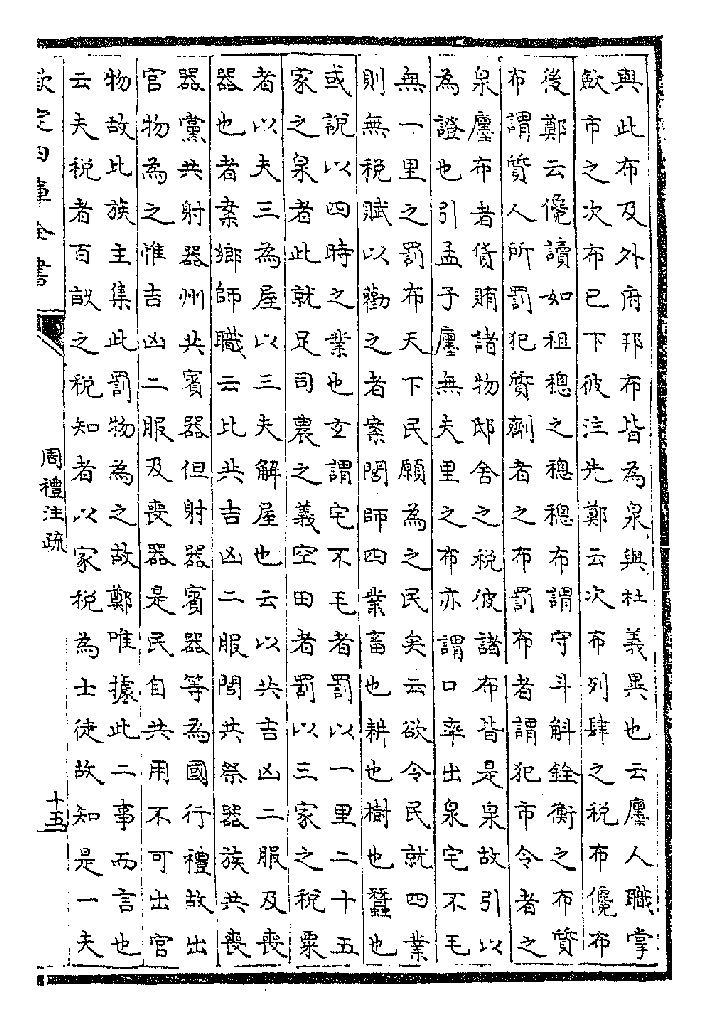 與此布及外府邦布皆為泉與杜義異也云廛人職掌
歛市之次布已下彼注先鄭云次布列肆之税布儳布
後鄭云儳讀如租穗之穗穗布謂守斗斛銓衡之布質
布謂質人所罰犯質劑者之布罰布者謂犯市令者之
泉廛布者貨賄諸物邸舍之税彼諸布皆是泉故引以
為證也引孟子廛無夫里之布亦謂口率出泉宅不毛
無一里之罰布天下民願為之民矣云欲令民就四業
則無税賦以勸之者案閭師四業畜也耕也樹也蠶也
或說以四時之業也玄謂宅不毛者罰以一里二十五
家之泉者此就足司農之義空田者罰以三家之税粟
者以夫三為屋以三夫解屋也云以共吉凶二服及喪
器也者案鄉師職云比共吉凶二服閭共祭器族共喪
器黨共射器州共賓器但射器賓器等為國行禮故出
官物為之惟吉凶二服及喪器是民自共用不可出官
物故此族主集此罰物為之故鄭唯據此二事而言也
云夫税者百畝之税知者以家税為士徒故知是一夫
欽定四庫全書
周禮注疏
十五